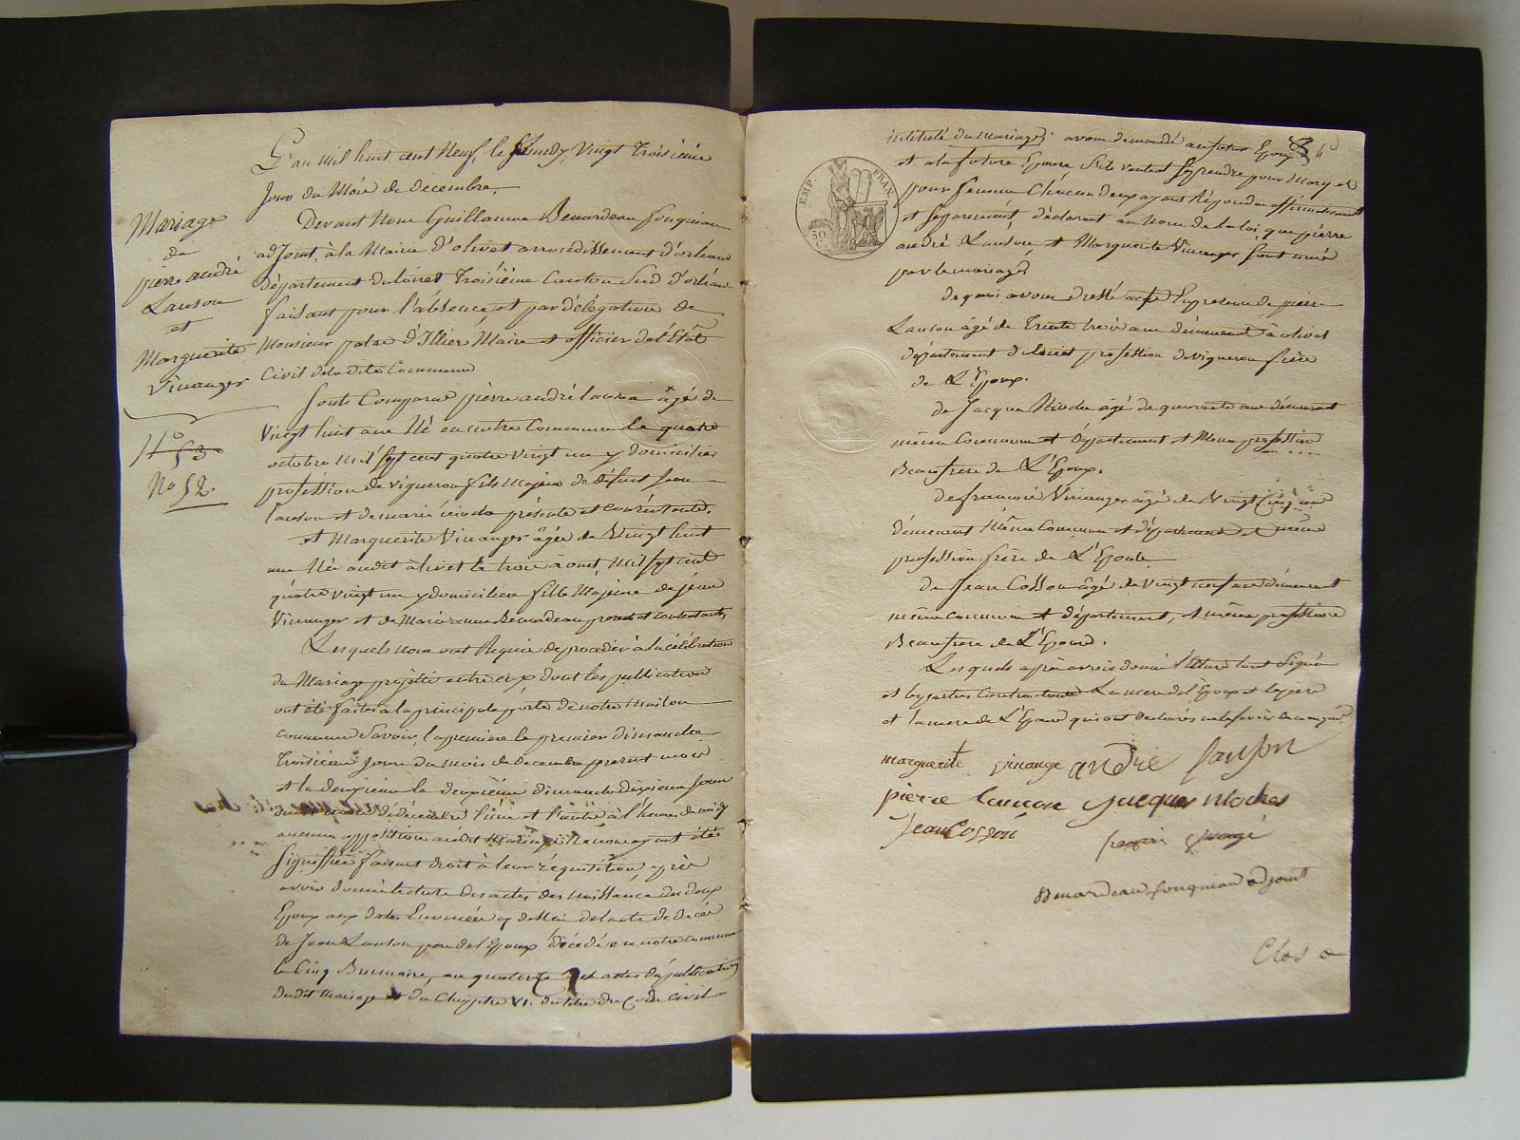 Mariage
de
pierre andré
Lanson
et
Marguerite
Vinanger
N° 53
No 52.
L'an mil huit cent Neuf, le Vingt Troisième
Jour du Mois de decembre,
Devant Nous Guillaume Benardeau fouqueau
adjoint, à la Mairie d'olivet arrondissement d'orleans
département du loiret Troisième Canton Sud d'orléans
faisant pour l'absence, et par délégation de
Monsieur patas d'Illiers Maire et officier de l'Etat
Civil de la dite Commune
Sont Comparus pierre andré lanson âgé de
Vingt huit ans Né en nôtre Commune le quatre
octobre mil sept cent quatre vingt un y domicilié
profession de vigneron fils Majeur de défunt Jean
Lanson et de marie présente et consentante,
et Marguerite Vinanger âgée de Vingt huit
ans Née audit olivet le trois aout, Mil sept cent
quatre vingt un y domiciliée fille Majeure de jean
Vinanger et de Marie anne Benardeau présent et contentants,
Lesquels nous ont Requis de proceder à la célébration
du Mariage projetté entre eux dont les publications
ont été faites à la principale porte de notre Maison
commune Savoir, la premiere le premier dimanche
Troisième Jour du mois de decembre present mois
et la deuxieme le deuxieme dimanche dixieme Jour
de décembre l'une et l'autre à l'heure de midy
aucune opposition audit Mariage ne nous ayant été
Signiffiée faisant droit à leur réquisition, après
avoir donné lecture des actes de Naissance des deux
Epoux aux dates Enoncées y de l'acte de décès
de Jean Lanson pere de l'Epoux décédé en notre commune
le Cinq Brumaire, an quatorze et actes de publications
dudit Mariage et du Chapitre VI. du titre du Code civil
intitulé du mariage; avons demandé au futur Epoux
et à la future Epouse s'ils veulent se prendre pour Mary et
pour femme Chacun d'eux ayant Répondu affirmativement
et séparément, déclarons au nom de la loi, que pierre
andré Lanson, et Marguerite Vinanger Sont unis
par le mariage
de quoi avons dressé acte En présence de pierre
Lanson âgé de Trente trois ans démeurant à olivet
département du loiret profession de vigneron frère
de L'Epoux.
de Jacque âgé de quarante ans démeurant
même Commune et département et Même profession
Beaufrere de L'Epoux.
de françois Vinanger âgé de Vingt Cinq ans
démeurant Même Commune et département et même
profession frère de L'Epouse
de Jean Cosson âgé de vingt neuf ans démeurant
même commune et département, et même profession
Beaufrere de L'Epouse.
Lesquels après avoir donné lecture ont Signé
et les parties Contractantes La mere de l'Epoux et le pere
et la mere de L'Epouse qui ont declarés ne le savoir de ce enquis
EMP. FRAN.
50
C.
marguerite vinange andré lanson
pierre lanson Jacques
Jean Cosson
Benardeau fouqueau adjoint
Clos